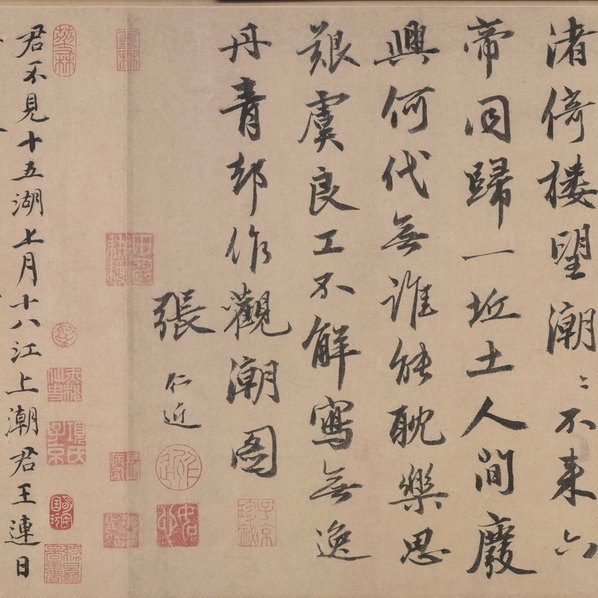 渚倚楼望潮潮不来六
帝同歸一坵土人間廢
興何代無誰能耽樂思
艱虞良工不解寫無逸
丹青却作觀潮图
張仁近
君不見十五湖上月十八江上潮君王連日